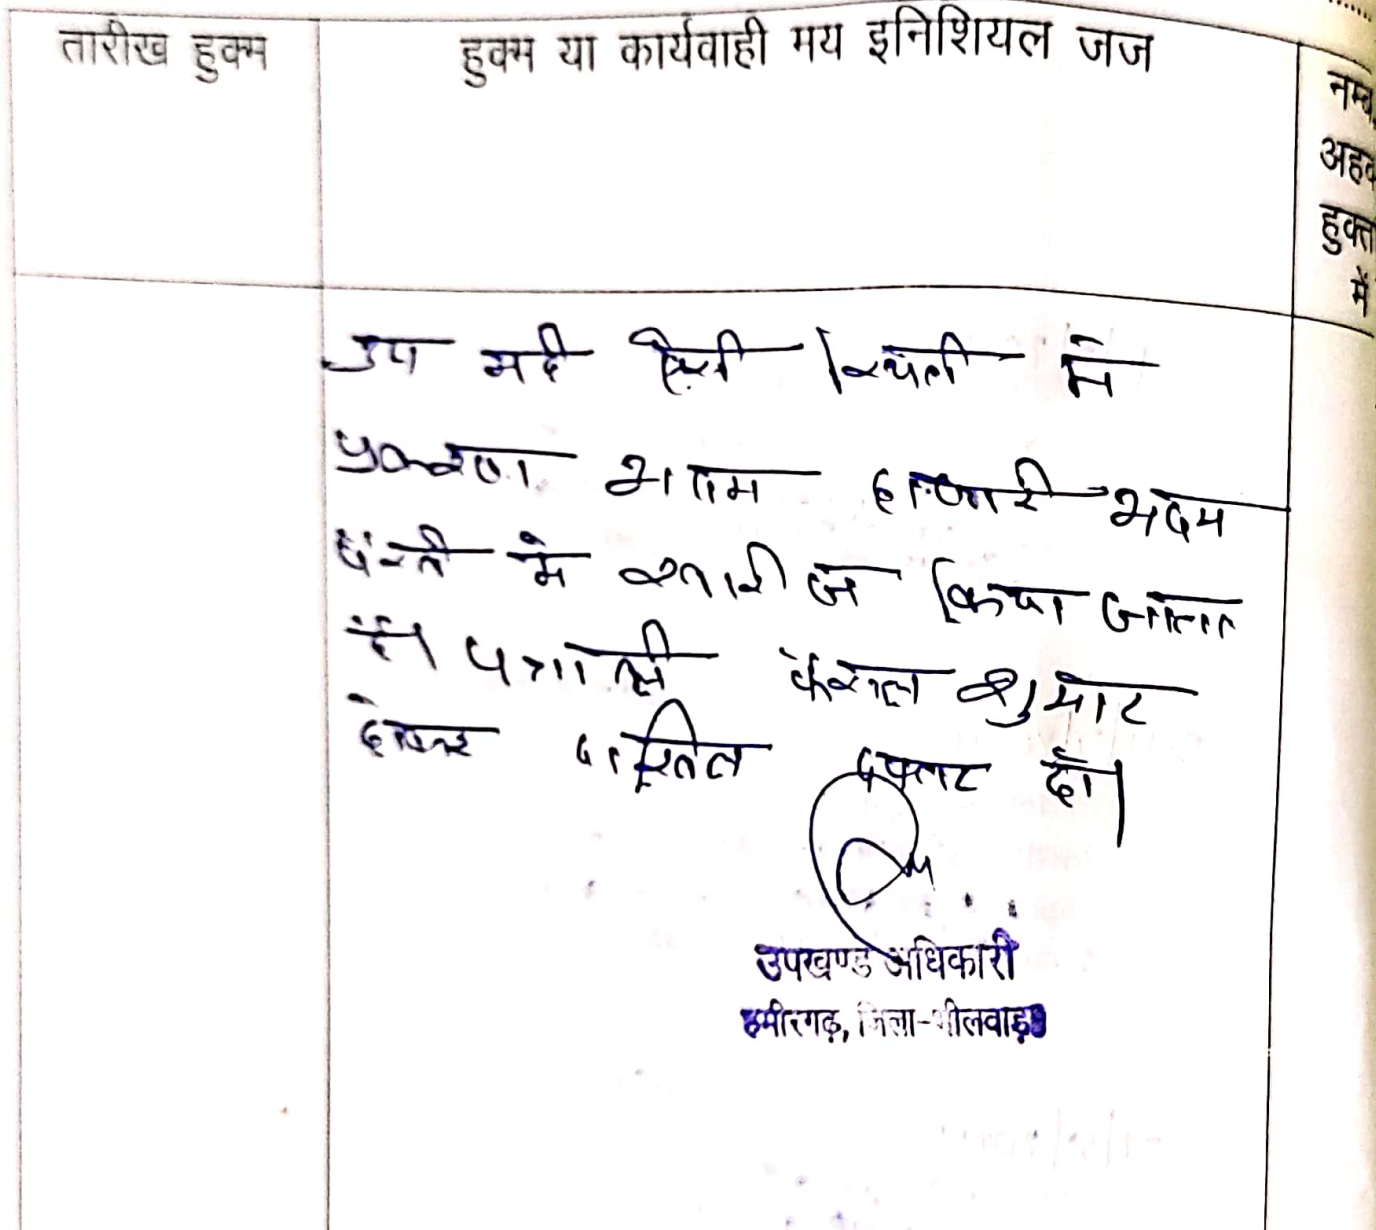 तारीख हुक्म
हुक्म या कार्यवाही मय इनिशियल जज
नम्ब
अहव
हुक्त
में
उप नही ऐसी स्थिती मे
प्रकरण अदम हाजरी अदम
पैरवी मे खारीज किया जाता
है। पत्रावली फैसल शुमार
होकर दाखिल दफ्तर हो।
उपखण्ड अधिकारी
हमीरगढ़, जिला-भीलवाड़ा